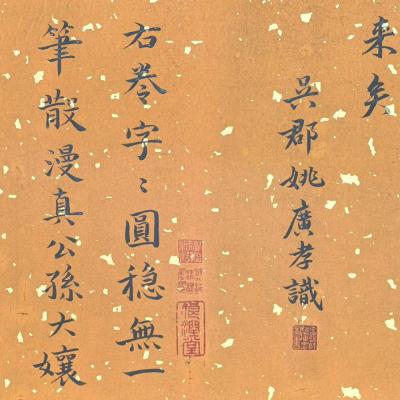 来矣
吳郡姚廣孝識
右卷字〻圓穩無一
筆散漫真公孫大孃